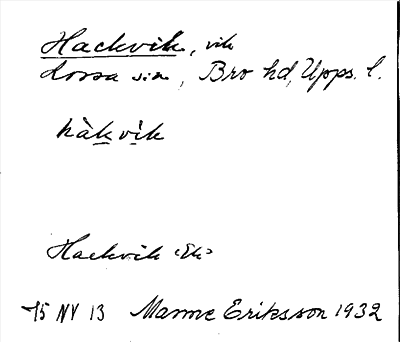 Hackvik, vik
Lossa sn, Bro hd, Upps. l.
hàkvik
Hackvik <Ek>
75 NV 13 Manne Eriksson 1932